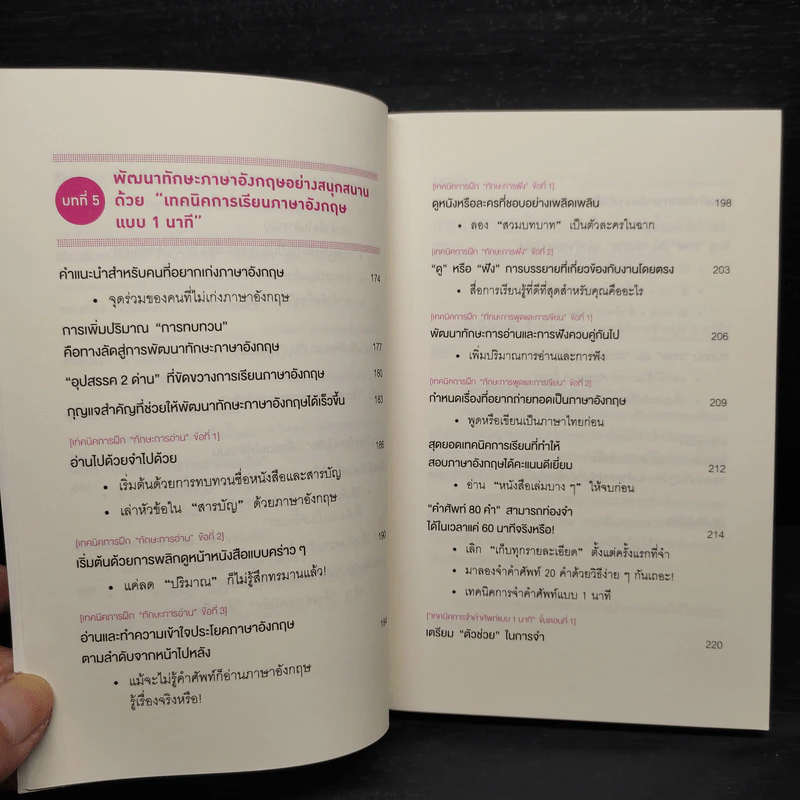 บทที่ 5
พัฒนาทักษะภาษาอังกฤษอย่างสนุกสนาน
ด้วย “เทคนิคการเรียนภาษาอังกฤษ
แบบ 1 นาที”
คำแนะนำสำหรับคนที่อยากเก่งภาษาอังกฤษ 174
• จุดร่วมของคนที่ไม่เก่งภาษาอังกฤษ
การเพิ่มปริมาณ “การทบทวน”
คือทางลัดสู่การพัฒนาทักษะภาษาอังกฤษ 177
“อุปสรรค 2 ด่าน” ที่ขัดขวางการเรียนภาษาอังกฤษ 180
กุญแจสำคัญที่ช่วยให้พัฒนาทักษะภาษาอังกฤษได้เร็วขึ้น 183
[เทคนิคการฝึก “ทักษะการอ่าน” ข้อที่ 1]
อ่านไปด้วยจำไปด้วย 186
• เริ่มต้นด้วยการทบทวนชื่อหนังสือและสารบัญ
• เล่าหัวข้อใน “สารบัญ” ด้วยภาษาอังกฤษ
[เทคนิคการฝึก “ทักษะการอ่าน” ข้อที่ 2]
เริ่มต้นด้วยการพลิกดูหน้าหนังสือแบบคร่าว ๆ 190
• แค่ลด “ปริมาณ” ก็ไม่รู้สึกทรมานแล้ว!
[เทคนิคการฝึก “ทักษะการอ่าน” ข้อที่ 3]
อ่านและทำความเข้าใจประโยคภาษาอังกฤษ 194
ตามลำดับจากหน้าไปหลัง
• แม้จะไม่รู้คำศัพท์ก็อ่านภาษาอังกฤษ
รู้เรื่องจริงหรือ!
[เทคนิคการฝึก “ทักษะการฟัง” ข้อที่ 1]
ดูหนังหรือละครที่ชอบอย่างเพลิดเพลิน 198
• ลอง “สวมบทบาท” เป็นตัวละครในฉาก
[เทคนิคการฝึก “ทักษะการฟัง” ข้อที่ 2]
“ดู” หรือ “ฟัง” การบรรยายที่เกี่ยวข้องกับงานโดยตรง 203
• สื่อการเรียนรู้ที่ดีที่สุดสำหรับคุณคืออะไร
[เทคนิคการฝึก “ทักษะการพูดและการเขียน” ข้อที่ 1]
พัฒนาทักษะการอ่านและการฟังควบคู่กันไป 206
• เพิ่มปริมาณการอ่านและการฟัง
[เทคนิคการฝึก “ทักษะการพูดและการเขียน” ข้อที่ 2]
กำหนดเรื่องที่อยากถ่ายทอดเป็นภาษาอังกฤษ 209
• พูดหรือเขียนเป็นภาษาไทยก่อน
สุดยอดเทคนิคการเรียนที่ทำให้
สอบภาษาอังกฤษได้คะแนนดีเยี่ยม 212
• อ่าน “หนังสือเล่มบาง ๆ” ให้จบก่อน
“คำศัพท์ 80 คำ” สามารถท่องจำ
ได้ในเวลาแค่ 60 นาทีจริงหรือ! 214
• เลิก “เก็บทุกรายละเอียด” ตั้งแต่ครั้งแรกที่จำ
• มาลองจำคำศัพท์ 20 คำด้วยวิธีง่าย ๆ กันเถอะ!
• เทคนิคการจำคำศัพท์แบบ 1 นาที
[“เทคนิคการจำคำศัพท์แบบ 1 นาที” ขั้นตอนที่ 1]
เตรียม “ตัวช่วย” ในการจำ 220